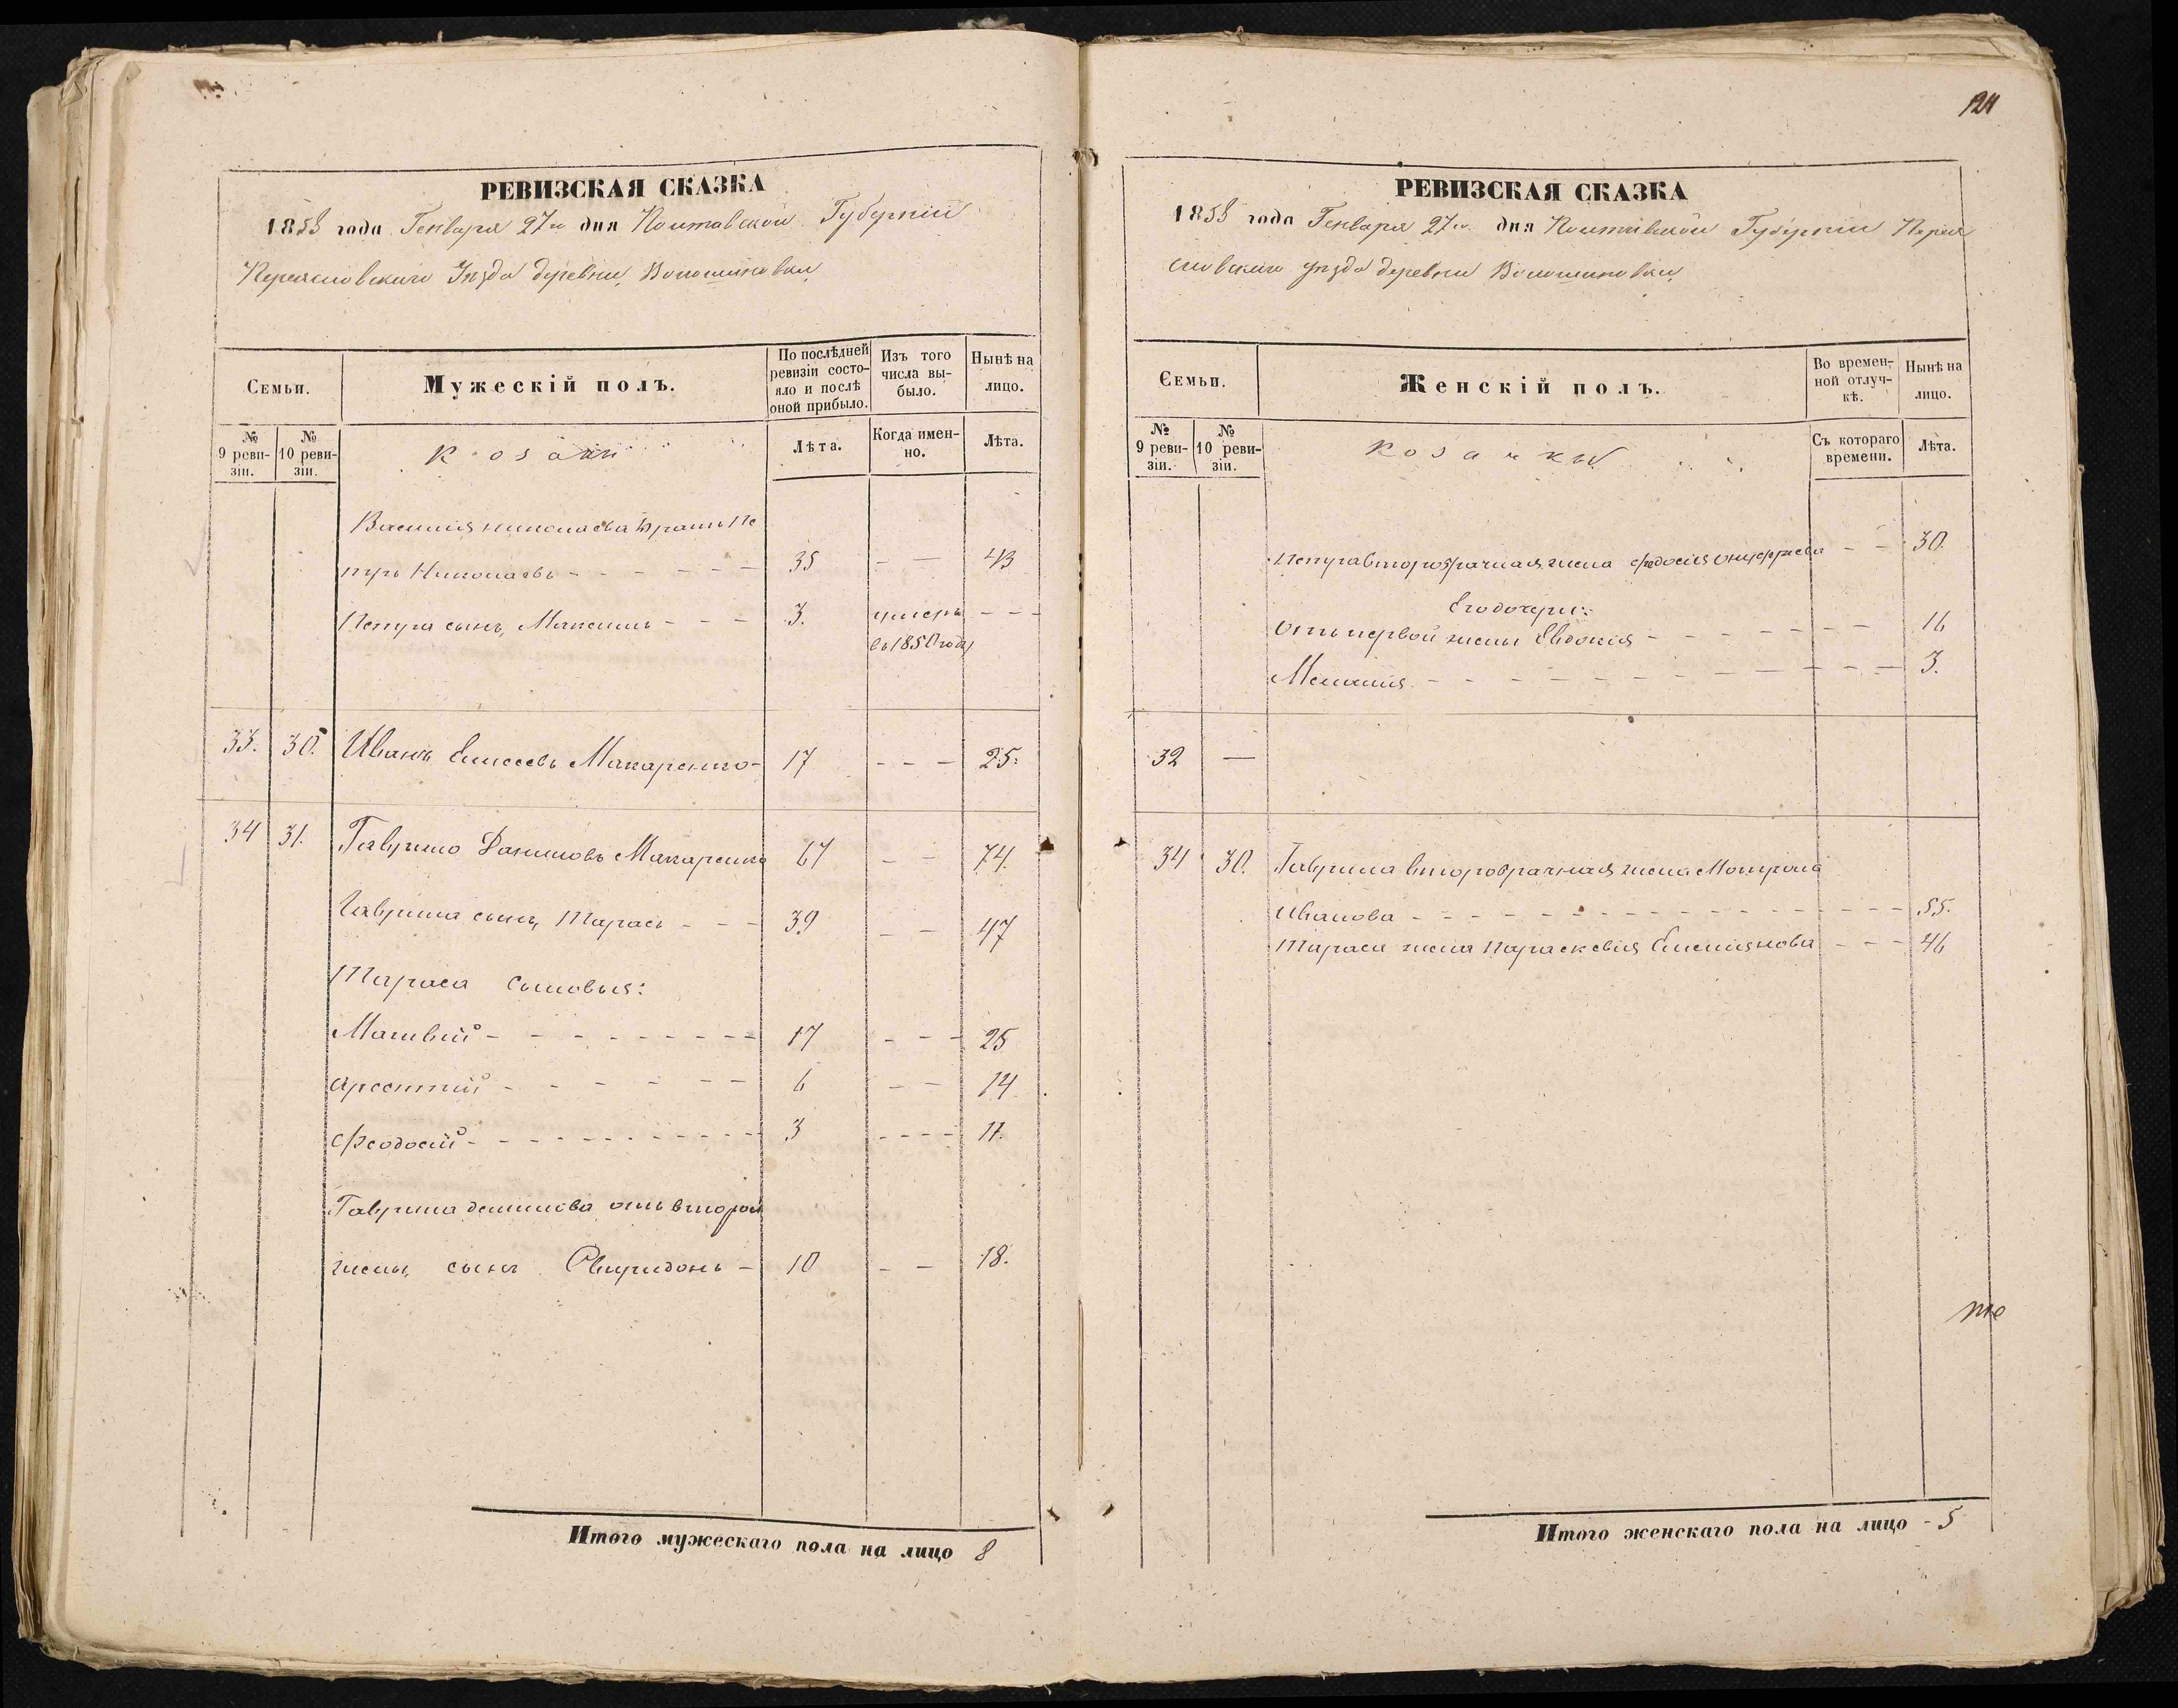 124
РЕВИЗСКАЯ СКАЗКА
1858 года Генваря 27го дня Полтавской Губернiи
Переясловскаго Уѣзда деревни Волошиновки
Семьи.
Мужескiй полъ.
По послѣдней ревизiи состояло и послѣ оной прибыло.
Изъ того числа выбыло.
Нынѣ на лицо.
№ 9 ревизiи.
№ 10 ревизiи.
Козаки
Лѣта.
Когда именно.
Лѣта.
Василия николаева братъ Пе
тръ Николаевъ - - - - - - 35 - - 43
Петра сынъ, Максимъ - - - 3. умеръ - - -
въ 1850 году
33. 30. Иванъ Елисеевъ Макаренко - 17 - - - 25.
34 31. Гаврило Даниловъ Макаренко 67 - - 74.
Гаврила сынъ, Тарасъ - - - 39 - - 47
Тараса сыновья:
Матвѣй - - - - - - - - 17 - - - 25
Арсентiй - - - - - - - 6 - - 14.
Феодосiй - - - - - - - - - - - 3 - - - - 11.
Гаврила данилова отъ второй
жены, сынъ Свиридонъ - 10 - - 18.
Итого мужескаго пола на лицо 8
РЕВИЗСКАЯ СКАЗКА
1858 года Генваря 27го дня Полтавской Губернiи Перея
словскаго уѣзда деревни Волошиновки
Семьи.
Женскiй полъ.
Во временной отлучкѣ.
Нынѣ на лицо.
№ 9 ревизiи.
№ 10 ревизiи.
Козачки
Съ котораго времени.
Лѣта.
Петра второбрачная жена Федосия Онуфриева - - 30.
Его дочери:
Отъ первой жены Евдокия - - - - - - - 16
Мелания - - - - - - - - - - - 3.
32 —
34 30. Гаврила второбрачная жена Мотрона
Иванова - - - - - - - - - - - - - - 55.
Тараса жена Параскевия Емельянова - - - 46
Итого женскаго пола на лицо - 5